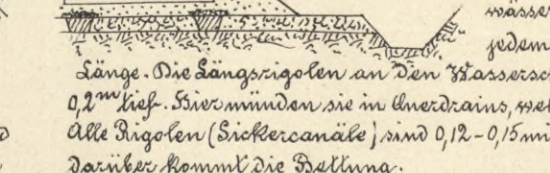 wässer
jedem
Länge. Die Längsrigolen an den Wassersc
0,2ᵐ tief. Hier münden sie in Querdrains, wel
Alle Rigolen (Sickercanäle) sind 0,12-0,15 m
darüber kommt die Bettung.